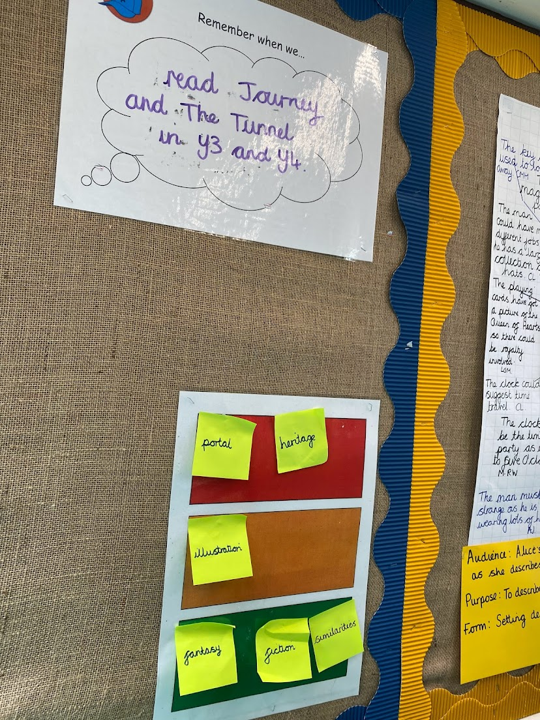 Remember when we...
read Journey
and The Tunnel
in Y3 and Y4.
portal
heritage
illustration
fantasy
fiction
similarities
The key
used to lo
away
mag
The man
could have m
different jobs
he has a larg
collection
hats. CL
The playing
cards have got
a picture of the
Queen of Hearts
so there could
be royalty
involved
The clock could
suggest time
travel. CL
The clock
be the
party as
to five O'clo
MRW
The man must
strange as he is
wearing lots of h
Audience: Alice's
as she describes
Purpose: To describe
Form: Setting de